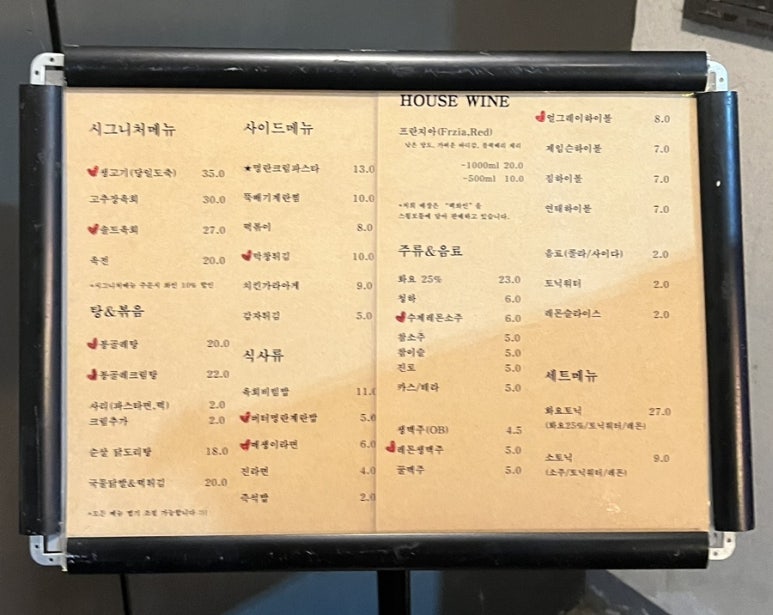 시그니처메뉴
생고기(당일도축) 35.0
고추장육회 30.0
솔트육회 27.0
육전 20.0
*시그니처메뉴 주문시 와인 10% 할인
탕&볶음
봉골레탕 20.0
봉골레크림탕 22.0
사리(파스타면,떡) 2.0
크림추가 2.0
순살 닭도리탕 18.0
국물닭발&떡튀김 20.0
*모든 메뉴 맵기 조절 가능합니다
사이드메뉴
★명란크림파스타 13.0
뚝배기계란찜 10.0
떡볶이 8.0
막창튀김 10.0
치킨가라아게 9.0
감자튀김 5.0
식사류
육회비빔밥 11.0
버터명란계란밥 5.0
매생이라면 6.0
진라면 4.0
즉석밥 2.0
HOUSE WINE
프란지아(Frzia.Red)
낮은 당도, 가벼운 바디감, 블랙베리 체리
-1000ml 20.0
-500ml 10.0
*저희 매장은 "팩와인"을
스월보틀에 담아 판매하고 있습니다.
주류&음료
화요 25% 23.0
청하 6.0
수제레몬소주 6.0
참소주 5.0
참이슬 5.0
진로 5.0
카스/테라 5.0
생맥주(OB) 4.5
레몬생맥주 5.0
꿀맥주 5.0
얼그레이하이볼 8.0
제임슨하이볼 7.0
짐하이볼 7.0
연태하이볼 7.0
음료(콜라/사이다) 2.0
토닉워터 2.0
레몬슬라이스 2.0
세트메뉴
화요토닉 27.0
(화요25%/토닉워터/레몬)
소토닉 9.0
(소주/토닉워터/레몬)